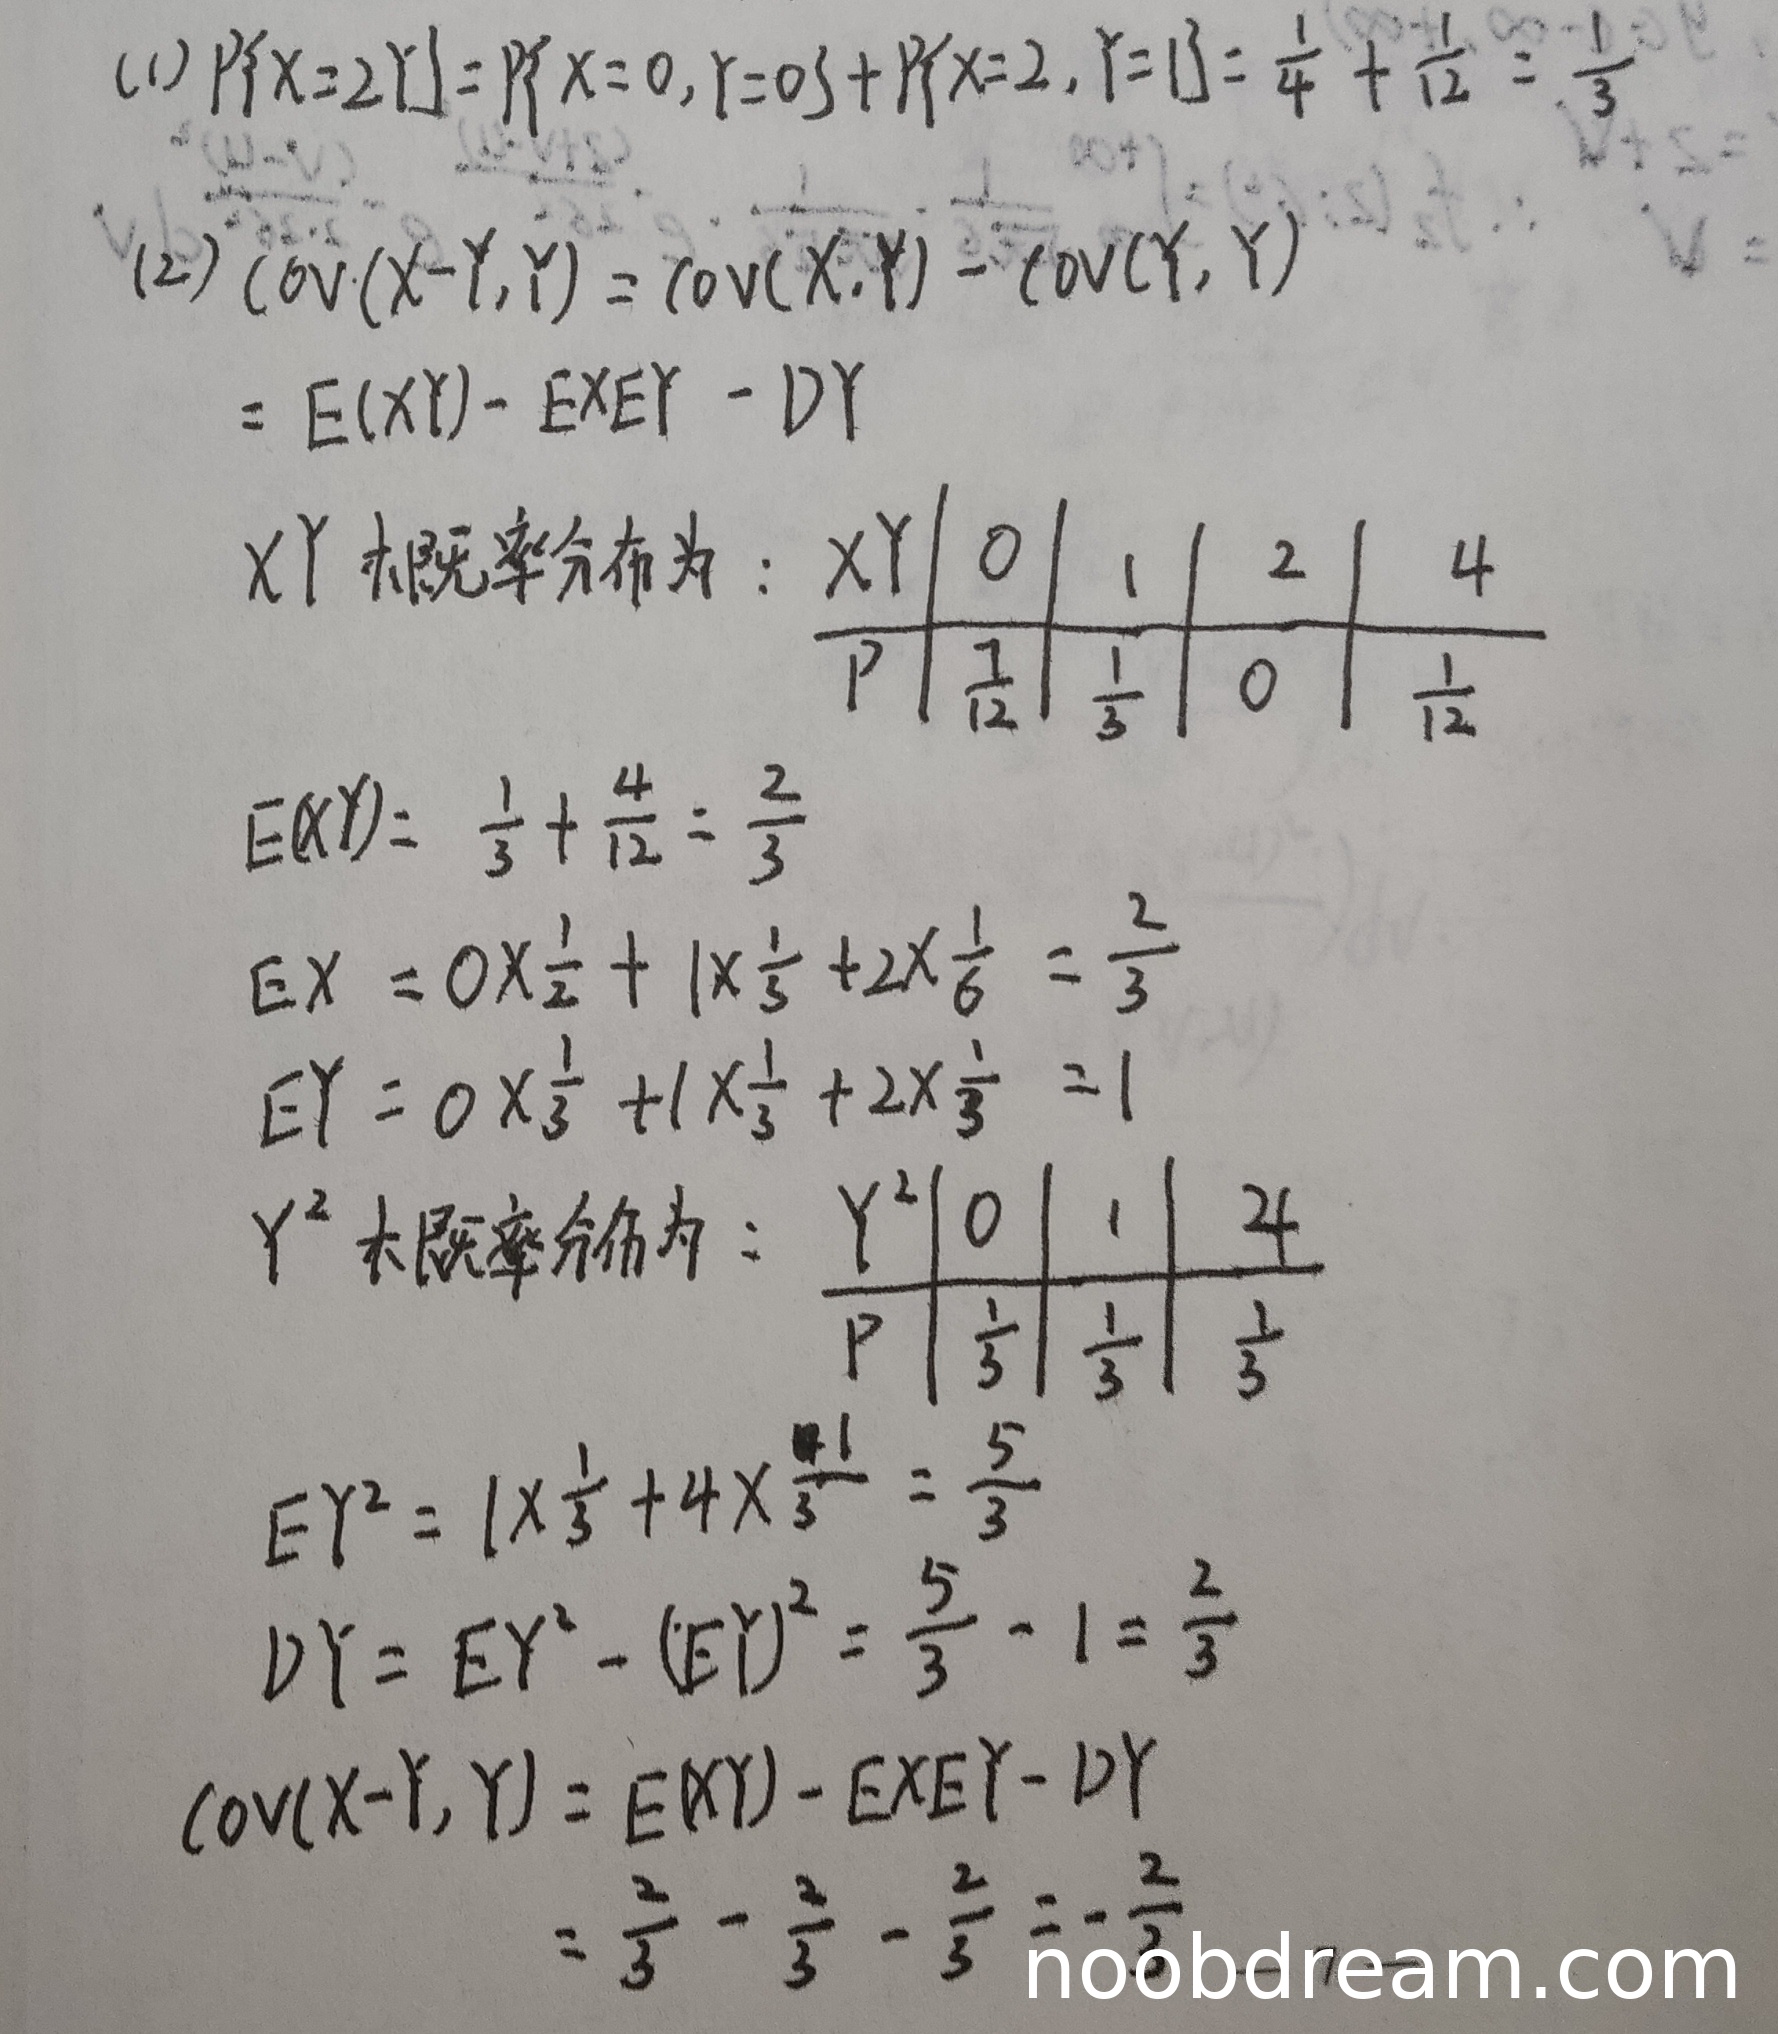 (1) P{X=2Y}=P{X=0,Y=0}+P{X=2,Y=1}=1/4+1/12=1/3
(2) cov(X-Y,Y)=cov(X,Y)-cov(Y,Y)
=E(XY)-EXEY-DY
XY 概率分布为: XY | 0 | 1 | 2 | 4
P | 7/12 | 1/3 | 0 | 1/12
E(XY)= 1/3+4/12=2/3
EX =0×1/2+1×1/3+2×1/6=2/3
EY=0×1/3+1×1/3+2×1/3=1
Y² 概率分布为: Y² | 0 | 1 | 4
P | 1/3 | 1/3 | 1/3
EY²=1×1/3+4×1/3=5/3
DY=EY²-(EY)²=5/3-1=2/3
cov(X-Y,Y)=E(XY)-EXEY-DY
=2/3-2/3-2/3=-2/3
noobdream.com